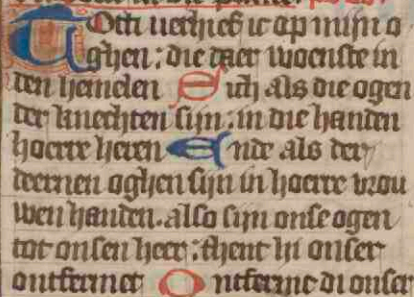 Totti uerhief ic op mijn o
ghen: die daer woenste in
den hemelen Sich als die ogen
der knechten sijn: in die handen
hoerre heren Ende als der
deernen oghen sijn in hoerre vrou
wen handen. also sijn onse ogen
tot onsen heer: thent hi onser
ontfermet Ontferme di onser